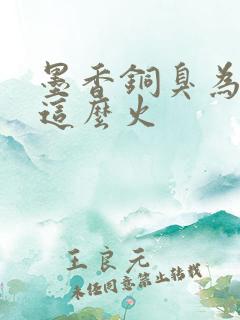 墨香銅臭為
這麼火
王良元
未經同意禁止轉載